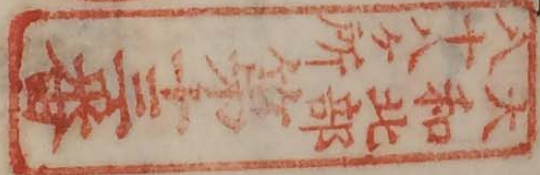 大和北部
八十八ヶ所
第十三番